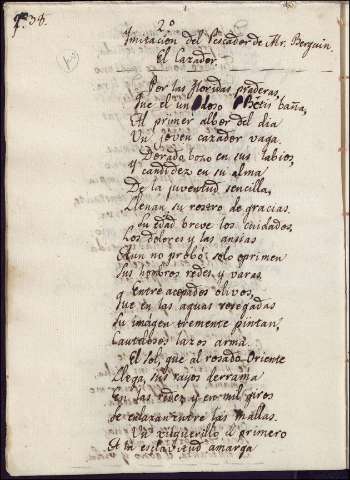 2º
Imitacion del Pescador de Mr. Berquin.
El Cazador.
Por las floridas praderas,
que el undoso Betis baña,
Al primer albor del dia
Un joven cazador vaga.
Dorado bozo en sus labios,
y candidez en su alma
De la juventud sencilla,
Llenan su rostro de gracias.
Su edad breve los cuidados,
Los dolores y las ansias
Aun no probó; solo oprimen
Sus hombros redes y varas.
Entre acopados olivos,
que en las aguas sosegadas
Su imagen tremente pintan,
Cautelosos lazos arma.
El Sol, que al rosado Oriente
Llega, sus rayos derrama
En las redes, y en mil giros
Se enlazan entre las mallas.
Un xilguerillo el primero
A la esclavitud amarga